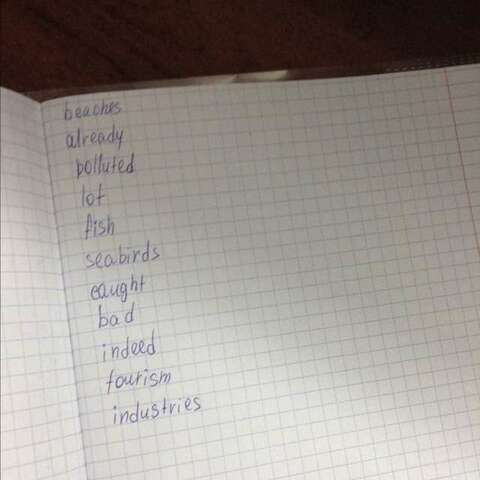 beaches
already
polluted
lot
fish
seabirds
caught
bad
indeed
tourism
industries